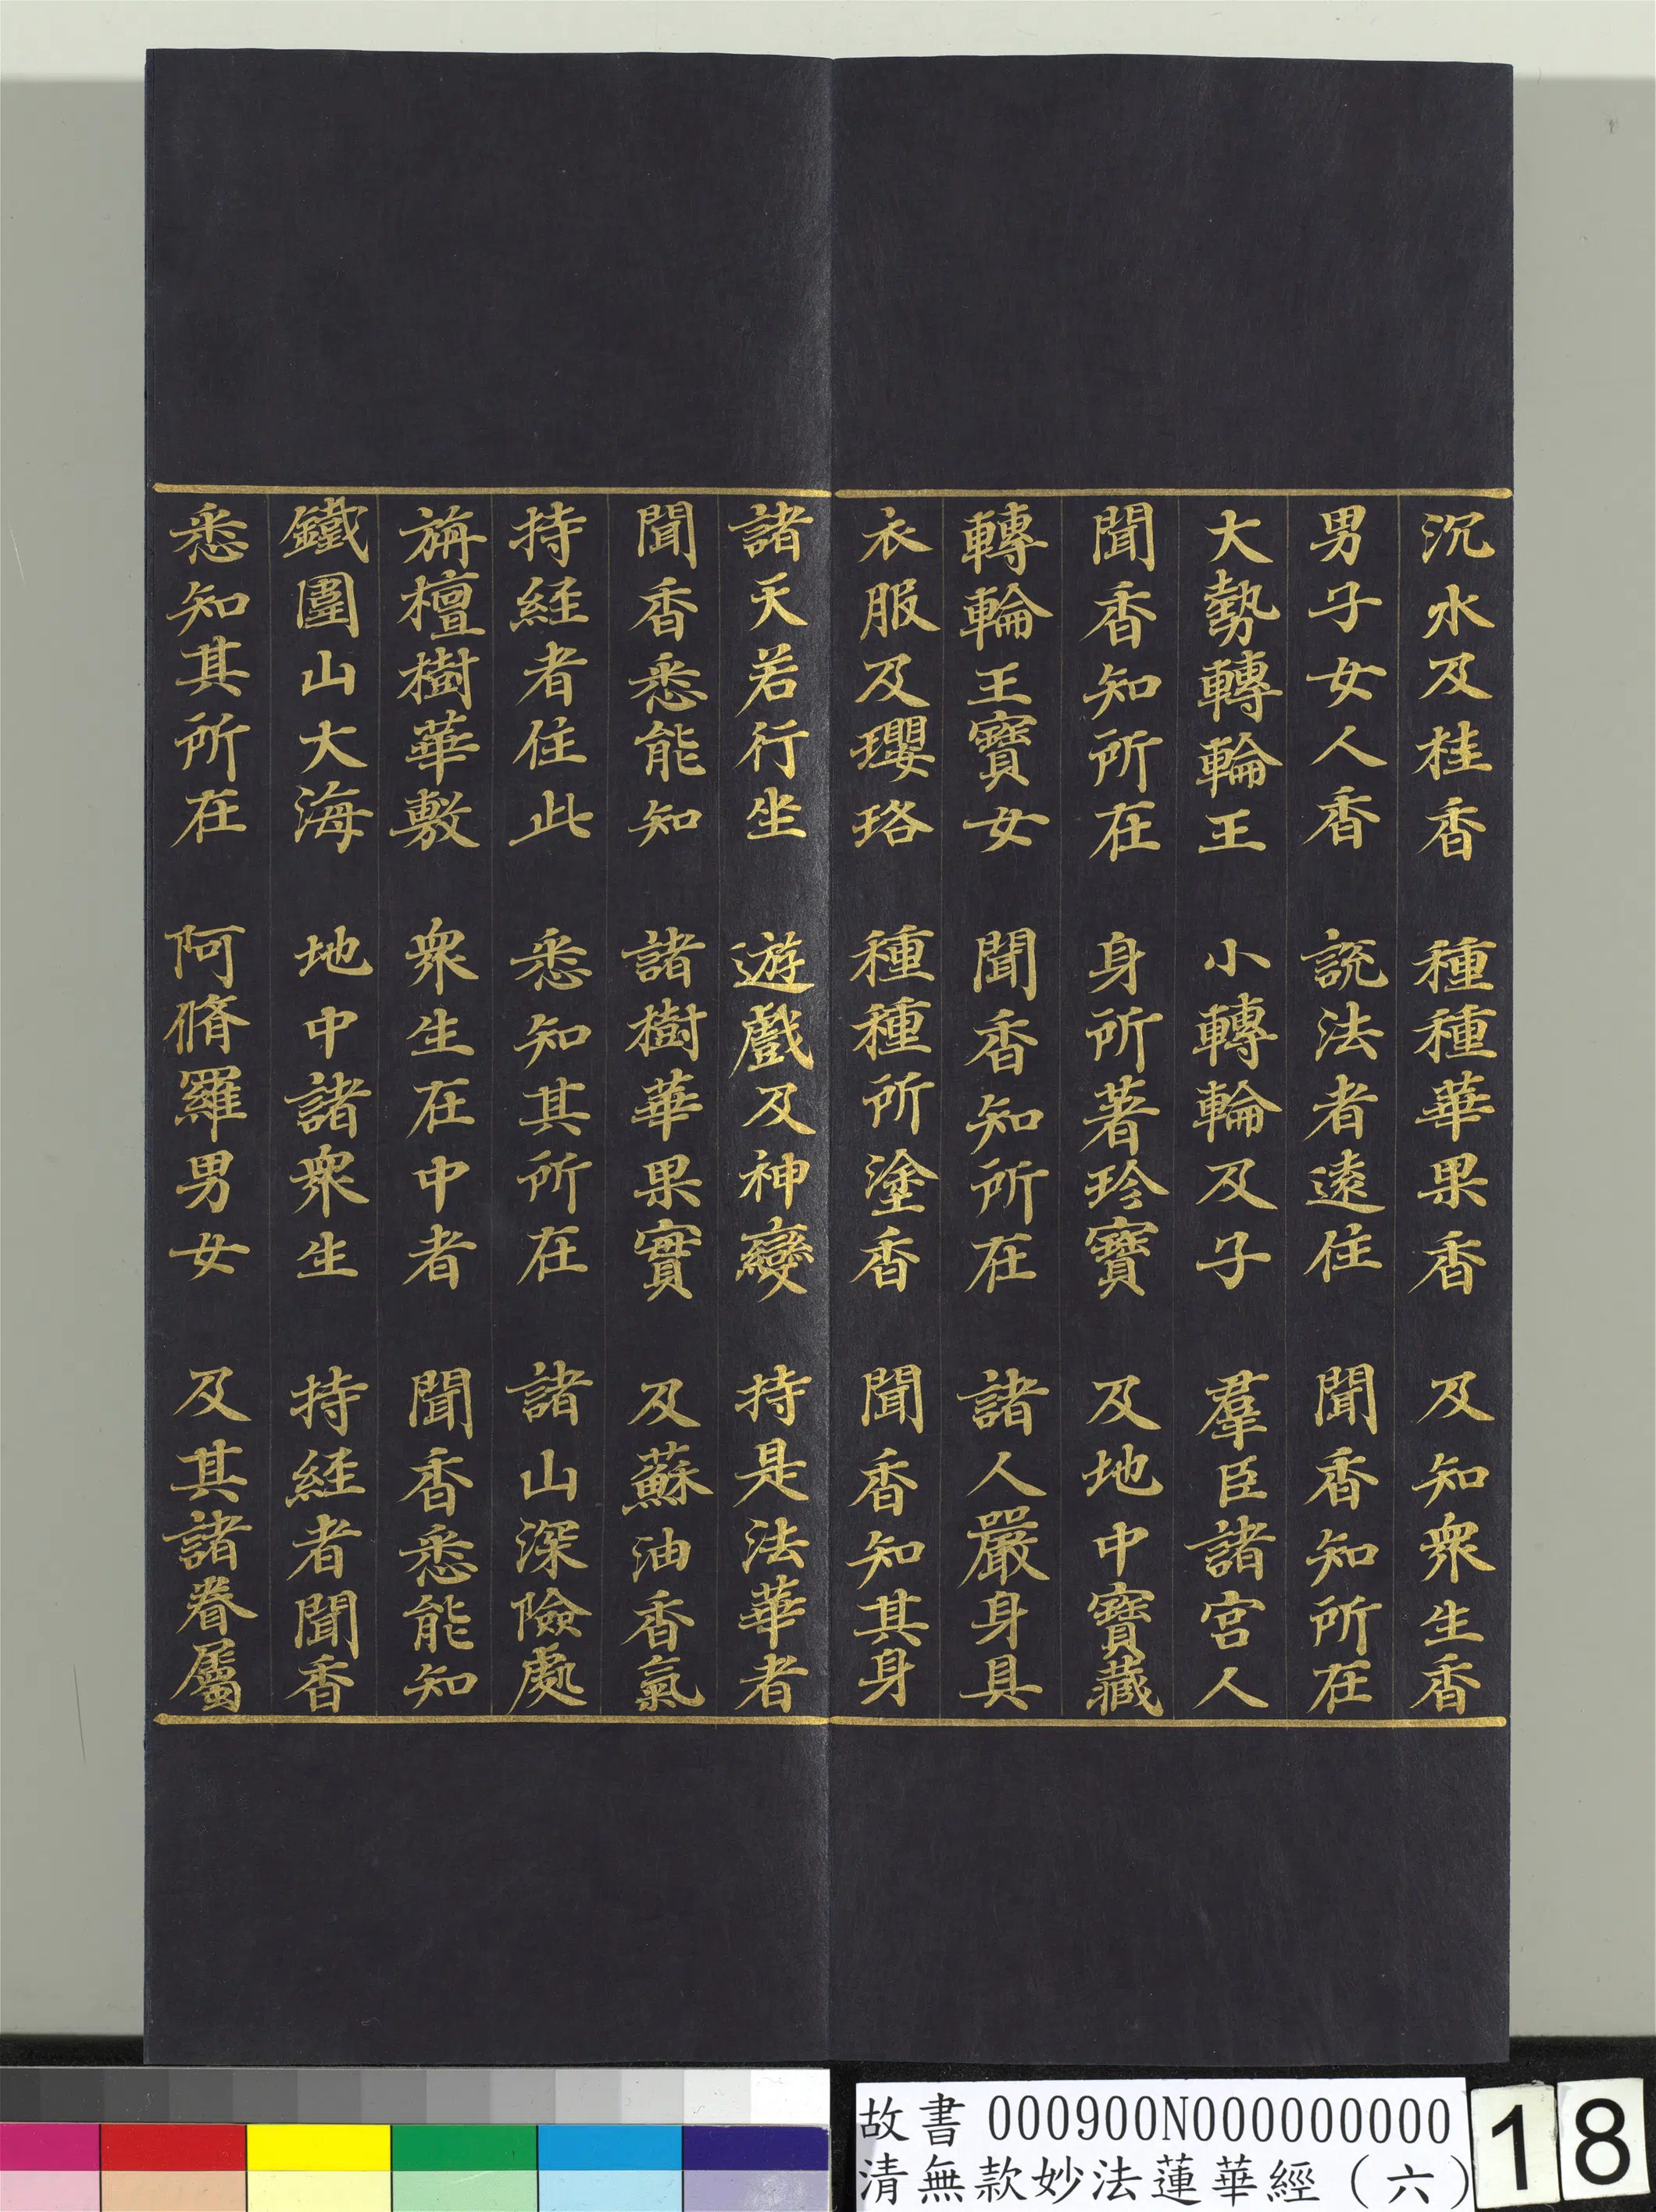 沉水及桂香　種種華果香　及知衆生香
男子女人香　說法者遠住　聞香知所在
大勢轉輪王　小轉輪及子　羣臣諸宮人
聞香知所在　身所著珍寶　及地中寶藏
轉輪王寶女　聞香知所在　諸人嚴身具
衣服及瓔珞　種種所塗香　聞香知其身
諸天若行坐　遊戲及神變　持是法華者
聞香悉能知　諸樹華果實　及蘇油香氣
持經者住此　悉知其所在　諸山深險處
旃檀樹華敷　衆生在中者　聞香悉能知
鐵圍山大海　地中諸衆生　持經者聞香
悉知其所在　阿脩羅男女　及其諸眷屬
故書 000900N000000000
清無款妙法蓮華經（六）
18